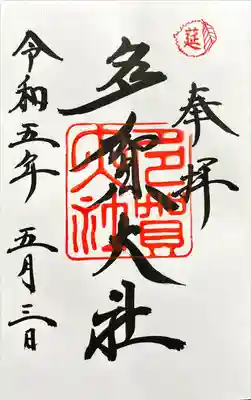 奉拝
延
多賀大社
多賀大社
令和五年 五月三日